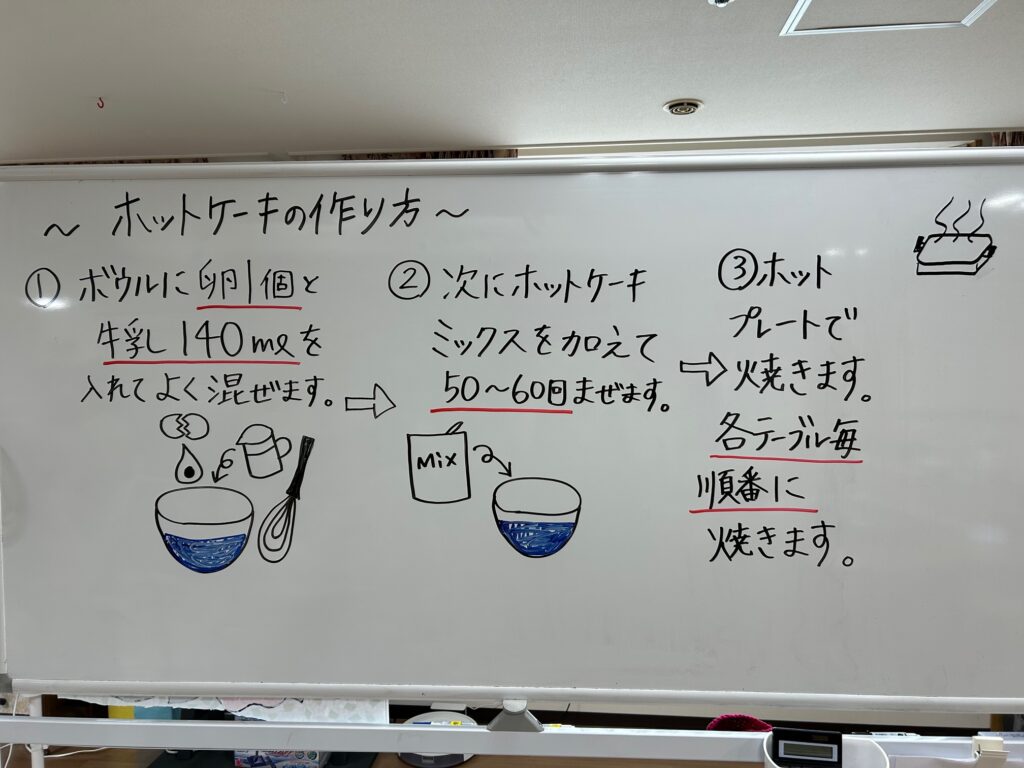 ～ ホットケーキの作り方～
① ボウルに卵1個と
牛乳140mlを
入れてよく混ぜます。
② 次にホットケーキ
ミックスを加えて
50～60回まぜます。
Mix
③ホット
プレートで
焼きます。
各テーブル毎
順番に
焼きます。